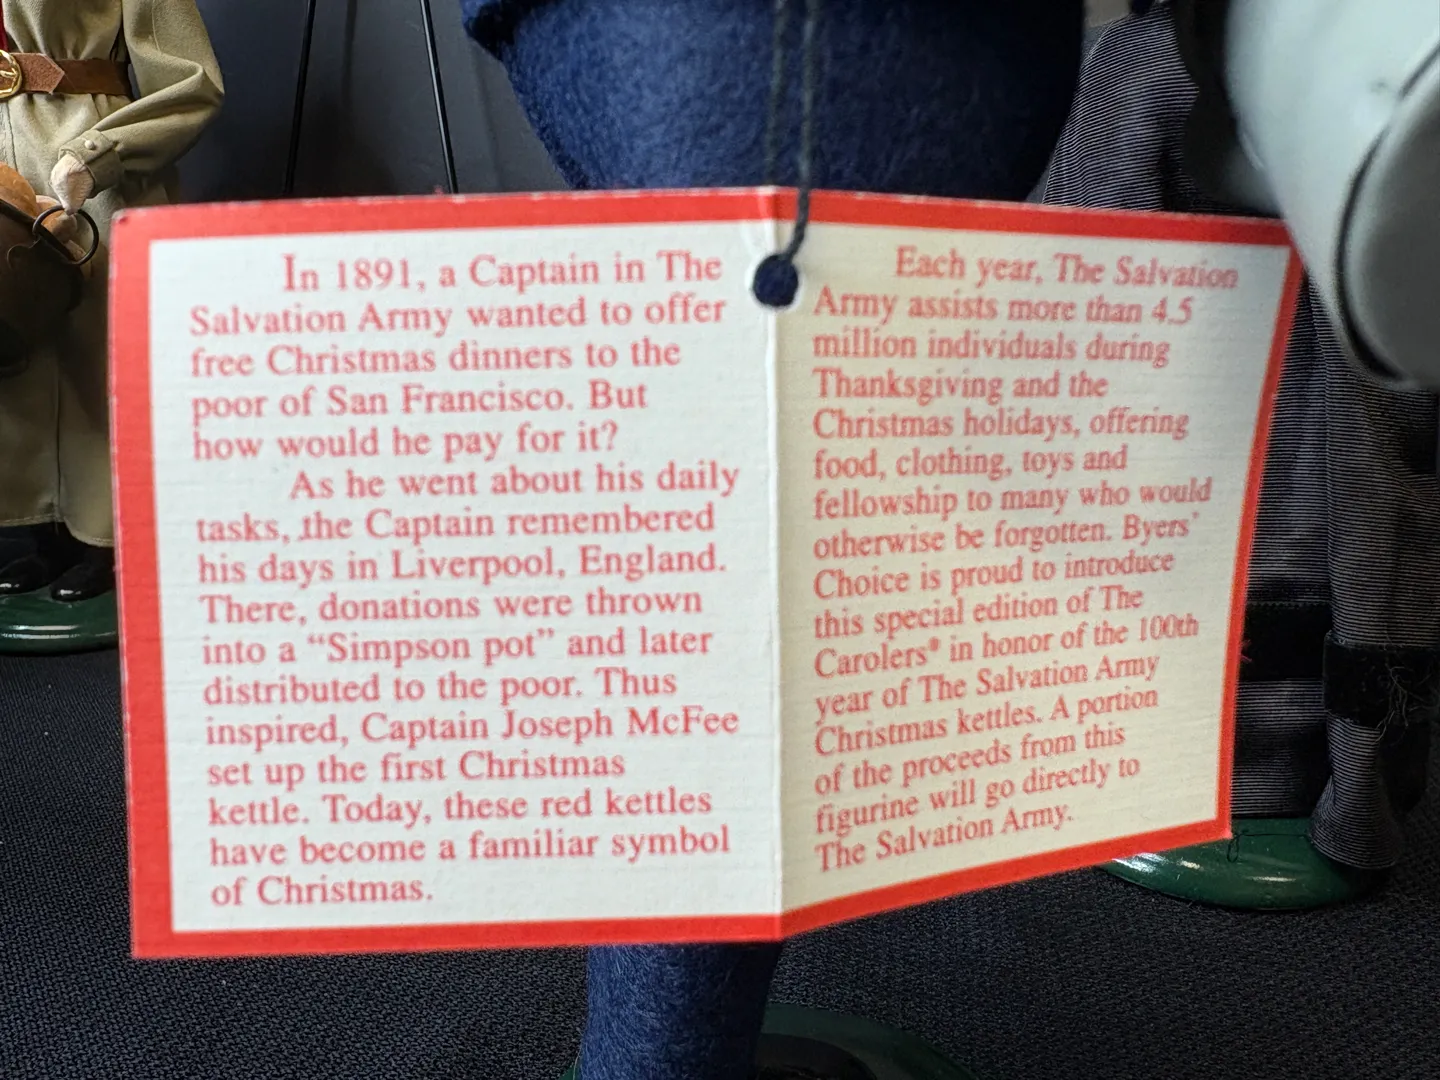 In 1891, a Captain in The
Salvation Army wanted to offer
free Christmas dinners to the
poor of San Francisco. But
how would he pay for it?
As he went about his daily
tasks, the Captain remembered
his days in Liverpool, England.
There, donations were thrown
into a “Simpson pot” and later
distributed to the poor. Thus
inspired, Captain Joseph McFee
set up the first Christmas
kettle. Today, these red kettles
have become a familiar symbol
of Christmas.
Each year, The Salvation
Army assists more than 4.5
million individuals during
Thanksgiving and the
Christmas holidays, offering
food, clothing, toys and
fellowship to many who would
otherwise be forgotten. Byers’
Choice is proud to introduce
this special edition of The
Carolers® in honor of the 100th
year of The Salvation Army
Christmas kettles. A portion
of the proceeds from this
figurine will go directly to
The Salvation Army.